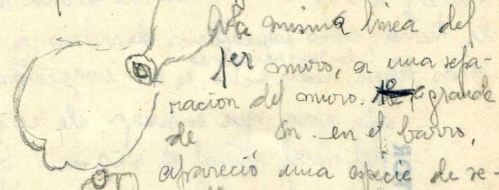 la misma línea del
1er muro, a una sepa-
ración del muro. grande
de m. en el barro,
apareció una especie de se-